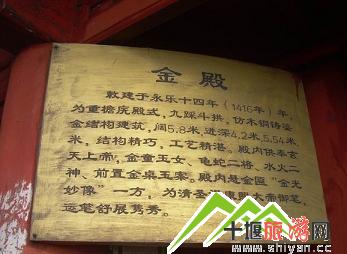 金殿
敕建于永乐十四年(1416年)年,
为重檐庑殿式,九踩斗拱,仿木铜铸鎏
金结构建筑,阔5.8米,进深4.2米,5.54米
米,结构精巧,工艺精湛。殿内供奉玄
天上帝,金童玉女、龟蛇二将、水火二
神、前置金桌玉案。殿内悬金匾“金光
妙像”一方,为清圣祖康熙大帝御笔,
运笔舒展隽秀。
十堰旅游网
www.shiyan.cc